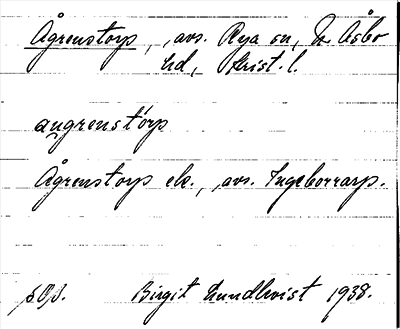 Ågrenstorp, avs. Rya sn, N. Åsbo
hd, Krist. l.
augrenstórp
Ågrenstorp ek., avs. Ingeborrarp.
Birgit Lundkvist 1938.